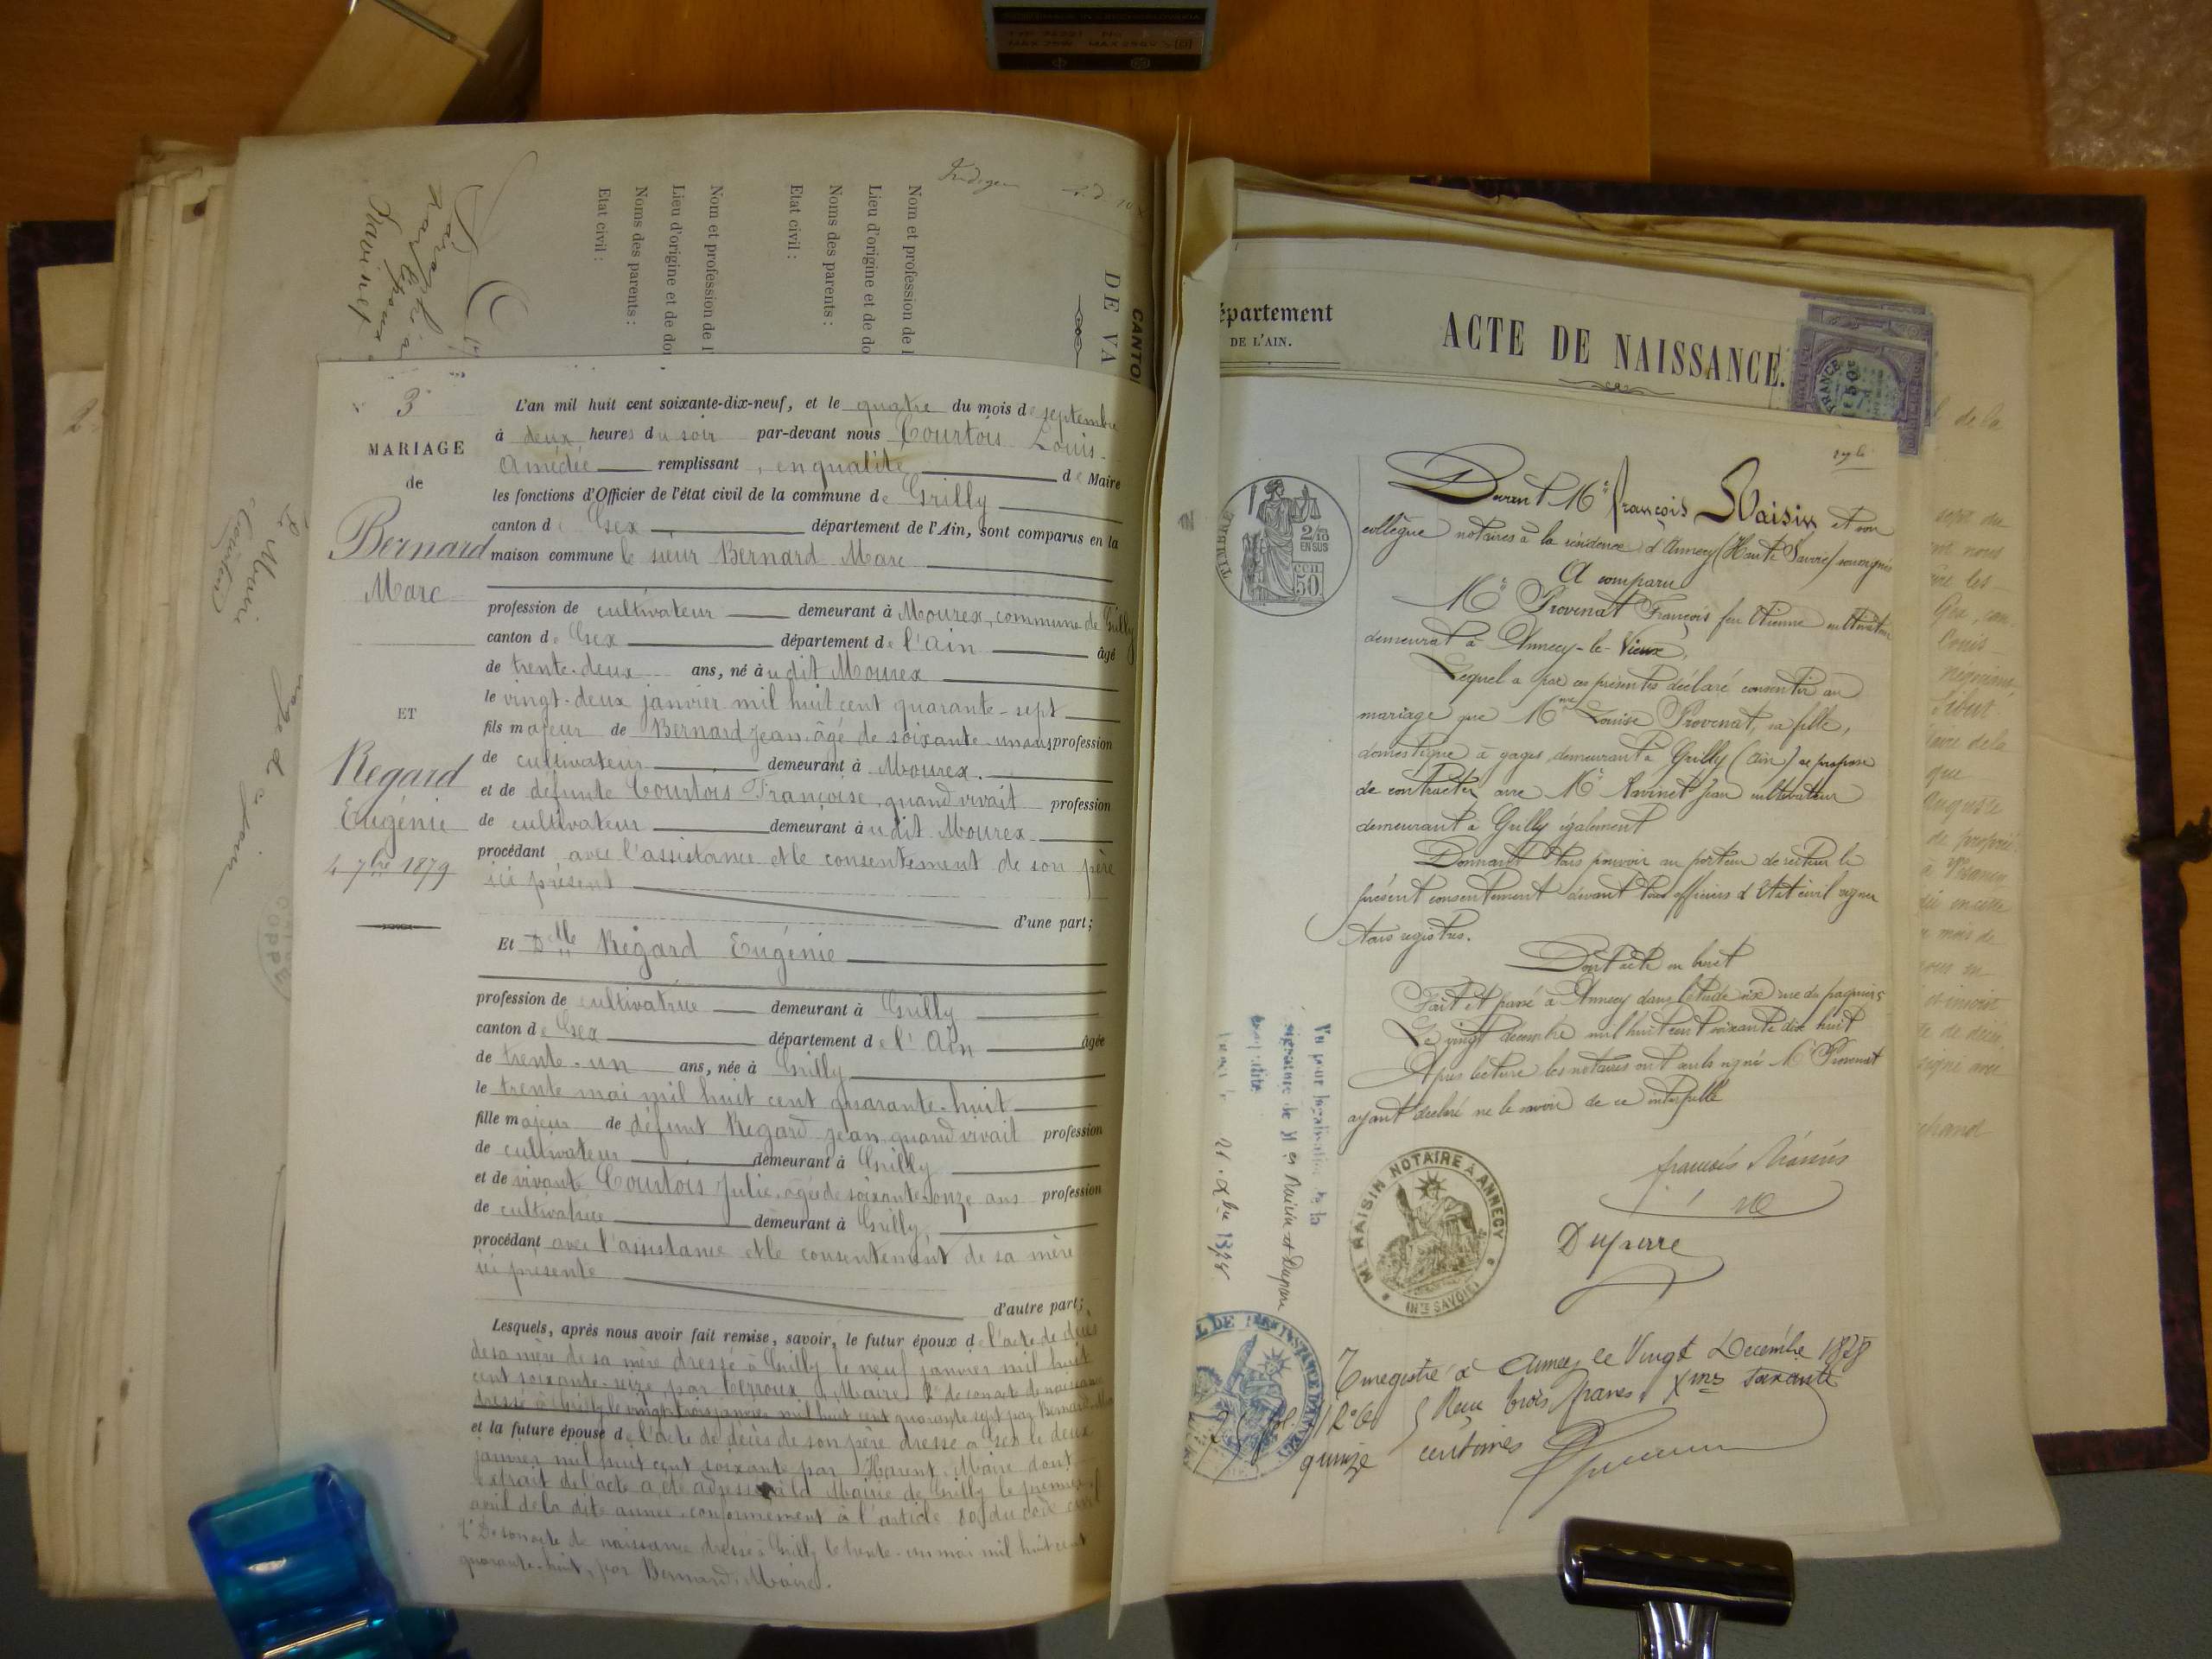 3
MARIAGE
de
Bernard
Marc
ET
Regard
Eugénie
4 7bre 1879
L'an mil huit cent soixante-dix-neuf, et le quatre du mois de septembre
à deux heures du soir par-devant nous Courtois Louis-
Amédée remplissant, en qualité de Maire
les fonctions d'Officier de l'état civil de la commune de Grilly
canton de Gex département de l'Ain, sont comparus en la
maison commune le sieur Bernard Marc
profession de cultivateur demeurant à Mourex, commune de Grilly
canton de Gex département de l'Ain âgé
de trente-deux ans, né à udit Mourex
le vingt-deux janvier mil huit cent quarante-sept
fils majeur de Bernard Jean, âgé de soixante-un ans profession
de cultivateur demeurant à Mourex.
et de défunte Courtois Françoise, quand vivait profession
de cultivateur demeurant à udit Mourex
procédant avec l'assistance et le consentement de son père
ici présent
d'une part;
Et Dlle Regard Eugénie
profession de cultivatrice demeurant à Grilly
canton de Gex département de l'Ain âgée
de trente-un ans, née à Grilly
le trente mai mil huit cent quarante-huit
fille majeur de défunt Regard Jean, quand vivait profession
de cultivateur demeurant à Grilly
et de vivante Courtois Julie, âgée de soixante-onze ans profession
de cultivatrice demeurant à Grilly
procédant avec l'assistance et le consentement de sa mère
ici présente
d'autre part;
Lesquels, après nous avoir fait remise, savoir, le futur époux de l'acte de décès
de sa mère de sa mère dressé à Grilly le neuf janvier mil huit
cent soixante-seize par Verroux, Maire 2° de son acte de naissance
dressé à Grilly le vingt-trois janvier mil huit cent quarante sept par Bernard
et la future épouse de l'acte de décès de son père dressé à Gex le deux
janvier mil huit cent soixante par Harent, Maire dont
extrait de l'acte a été adressé à ld Mairie de Grilly le premier
avril de la dite année conformément à l'article 80 du code civil
2° De son acte de naissance dressé à Grilly le trente-un mai mil huit cent
quarante-huit, par Bernard, Maire.
Nom et profession de l
Lieu d'origine et de do
Noms des parents :
Etat civil :
Nom et profession de l'
Lieu d'origine et de do
Noms des parents :
Etat civil :
DE VA
CANTO
Le Maire
épartement
DE L'AIN.
ACTE DE NAISSANCE.
FRANCE
TIMBRE
2/10
EN SUS
50 cen
Devant Me François Maisin et son
collègue notaires à la résidence d'Annecy (Haute Savoie) soussignés
A comparu
Mr Provenat François feu Etienne cultivateur
demeurant à Annecy-le-Vieux,
Lequel a par ces présentes déclaré consentir au
mariage que Mme Louise Provenat, sa fille,
domestique à gages demeurant à Grilly (Ain) se propose
de contracter avec Mr Ravinet Jean cultivateur
demeurant à Grilly également
Donnant tous pouvoir au porteur de réitérer le
présent consentement devant tous officiers d'Etat civil signer
tous registres.
Dont acte en brevet
Fait et passé à Annecy dans l'étude sise rue du paquier
Le vingt décembre mil huit cent soixante dix huit
Après lecture les notaires ont seuls signé Mr Provenat
ayant déclaré ne le savoir de ce interpellé
Duparre
Me MAISIN NOTAIRE A ANNECY
(HTE SAVOIE)
Vu pour légalisation de la
signature de Me Maisin et Duparre
21 Xbre 1878
Enregistré à Annecy le Vingt Décembre 1878
Reçu trois francs, Xmes soixante
quinze centimes